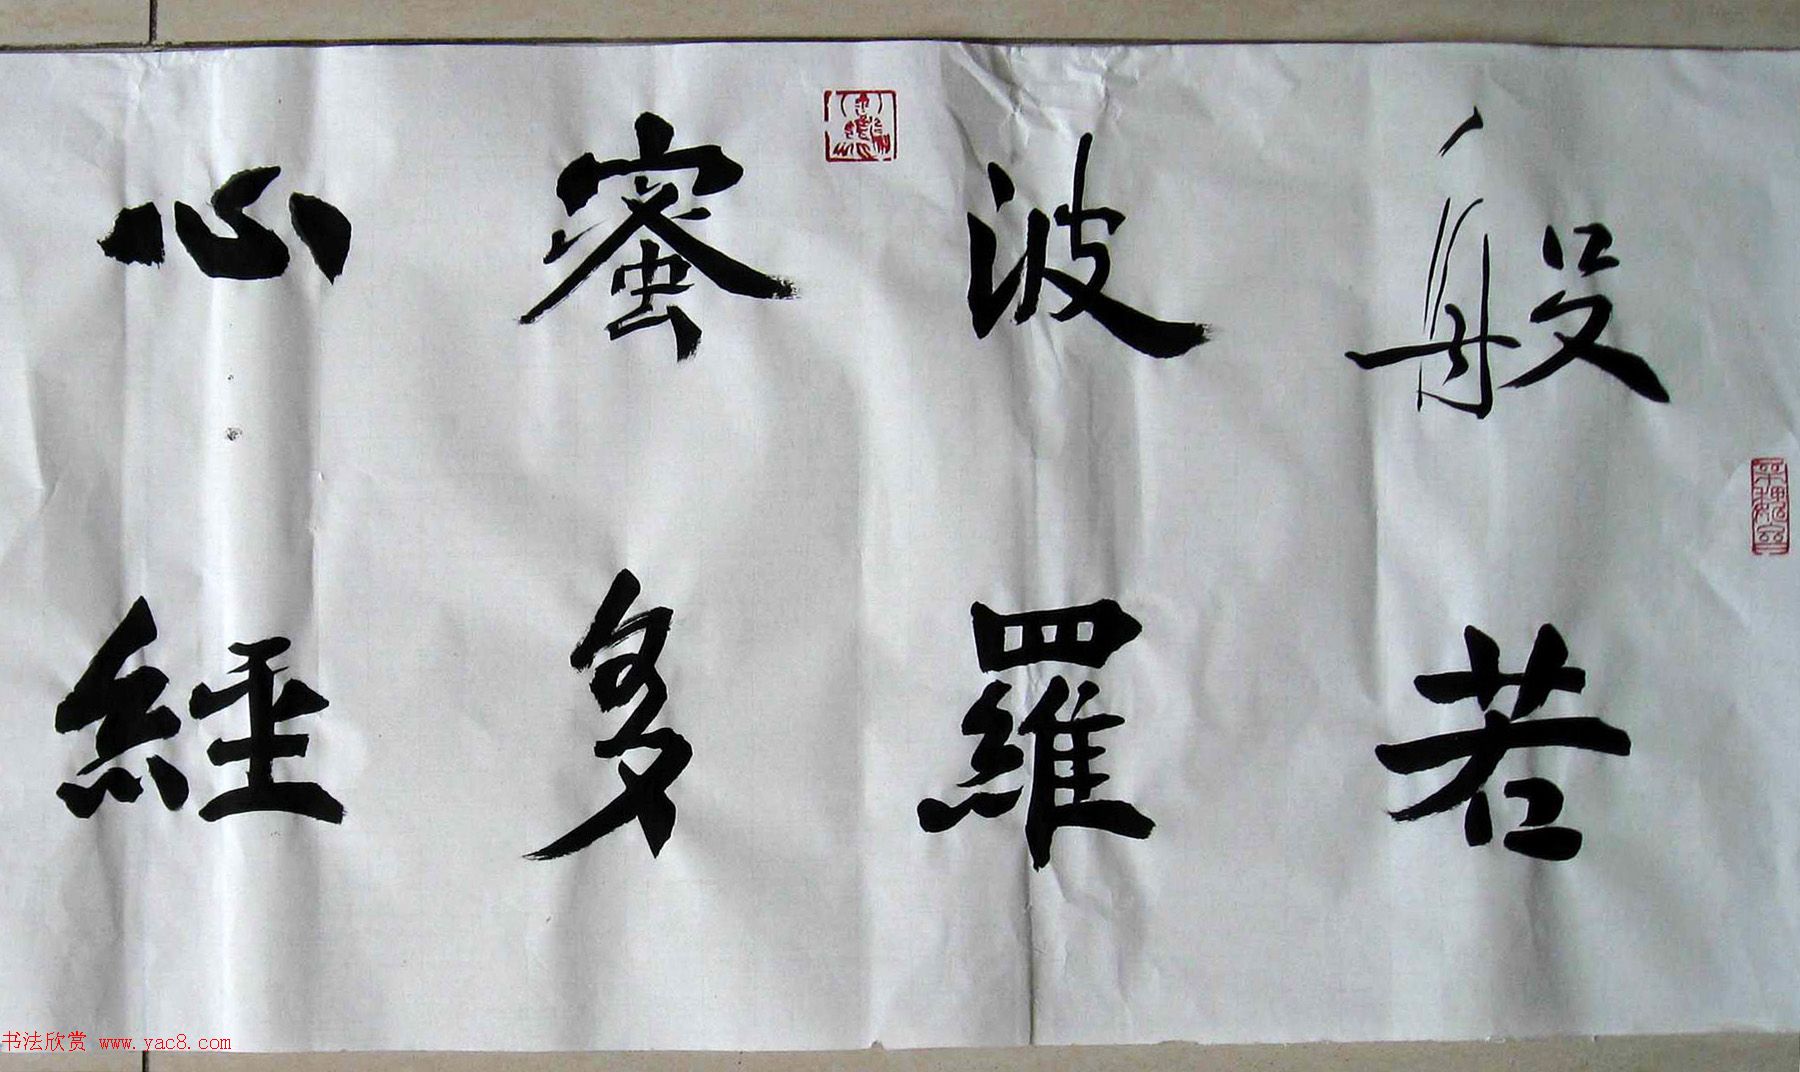 般若
波羅
蜜多
心經
书法欣赏 www.yac8.com